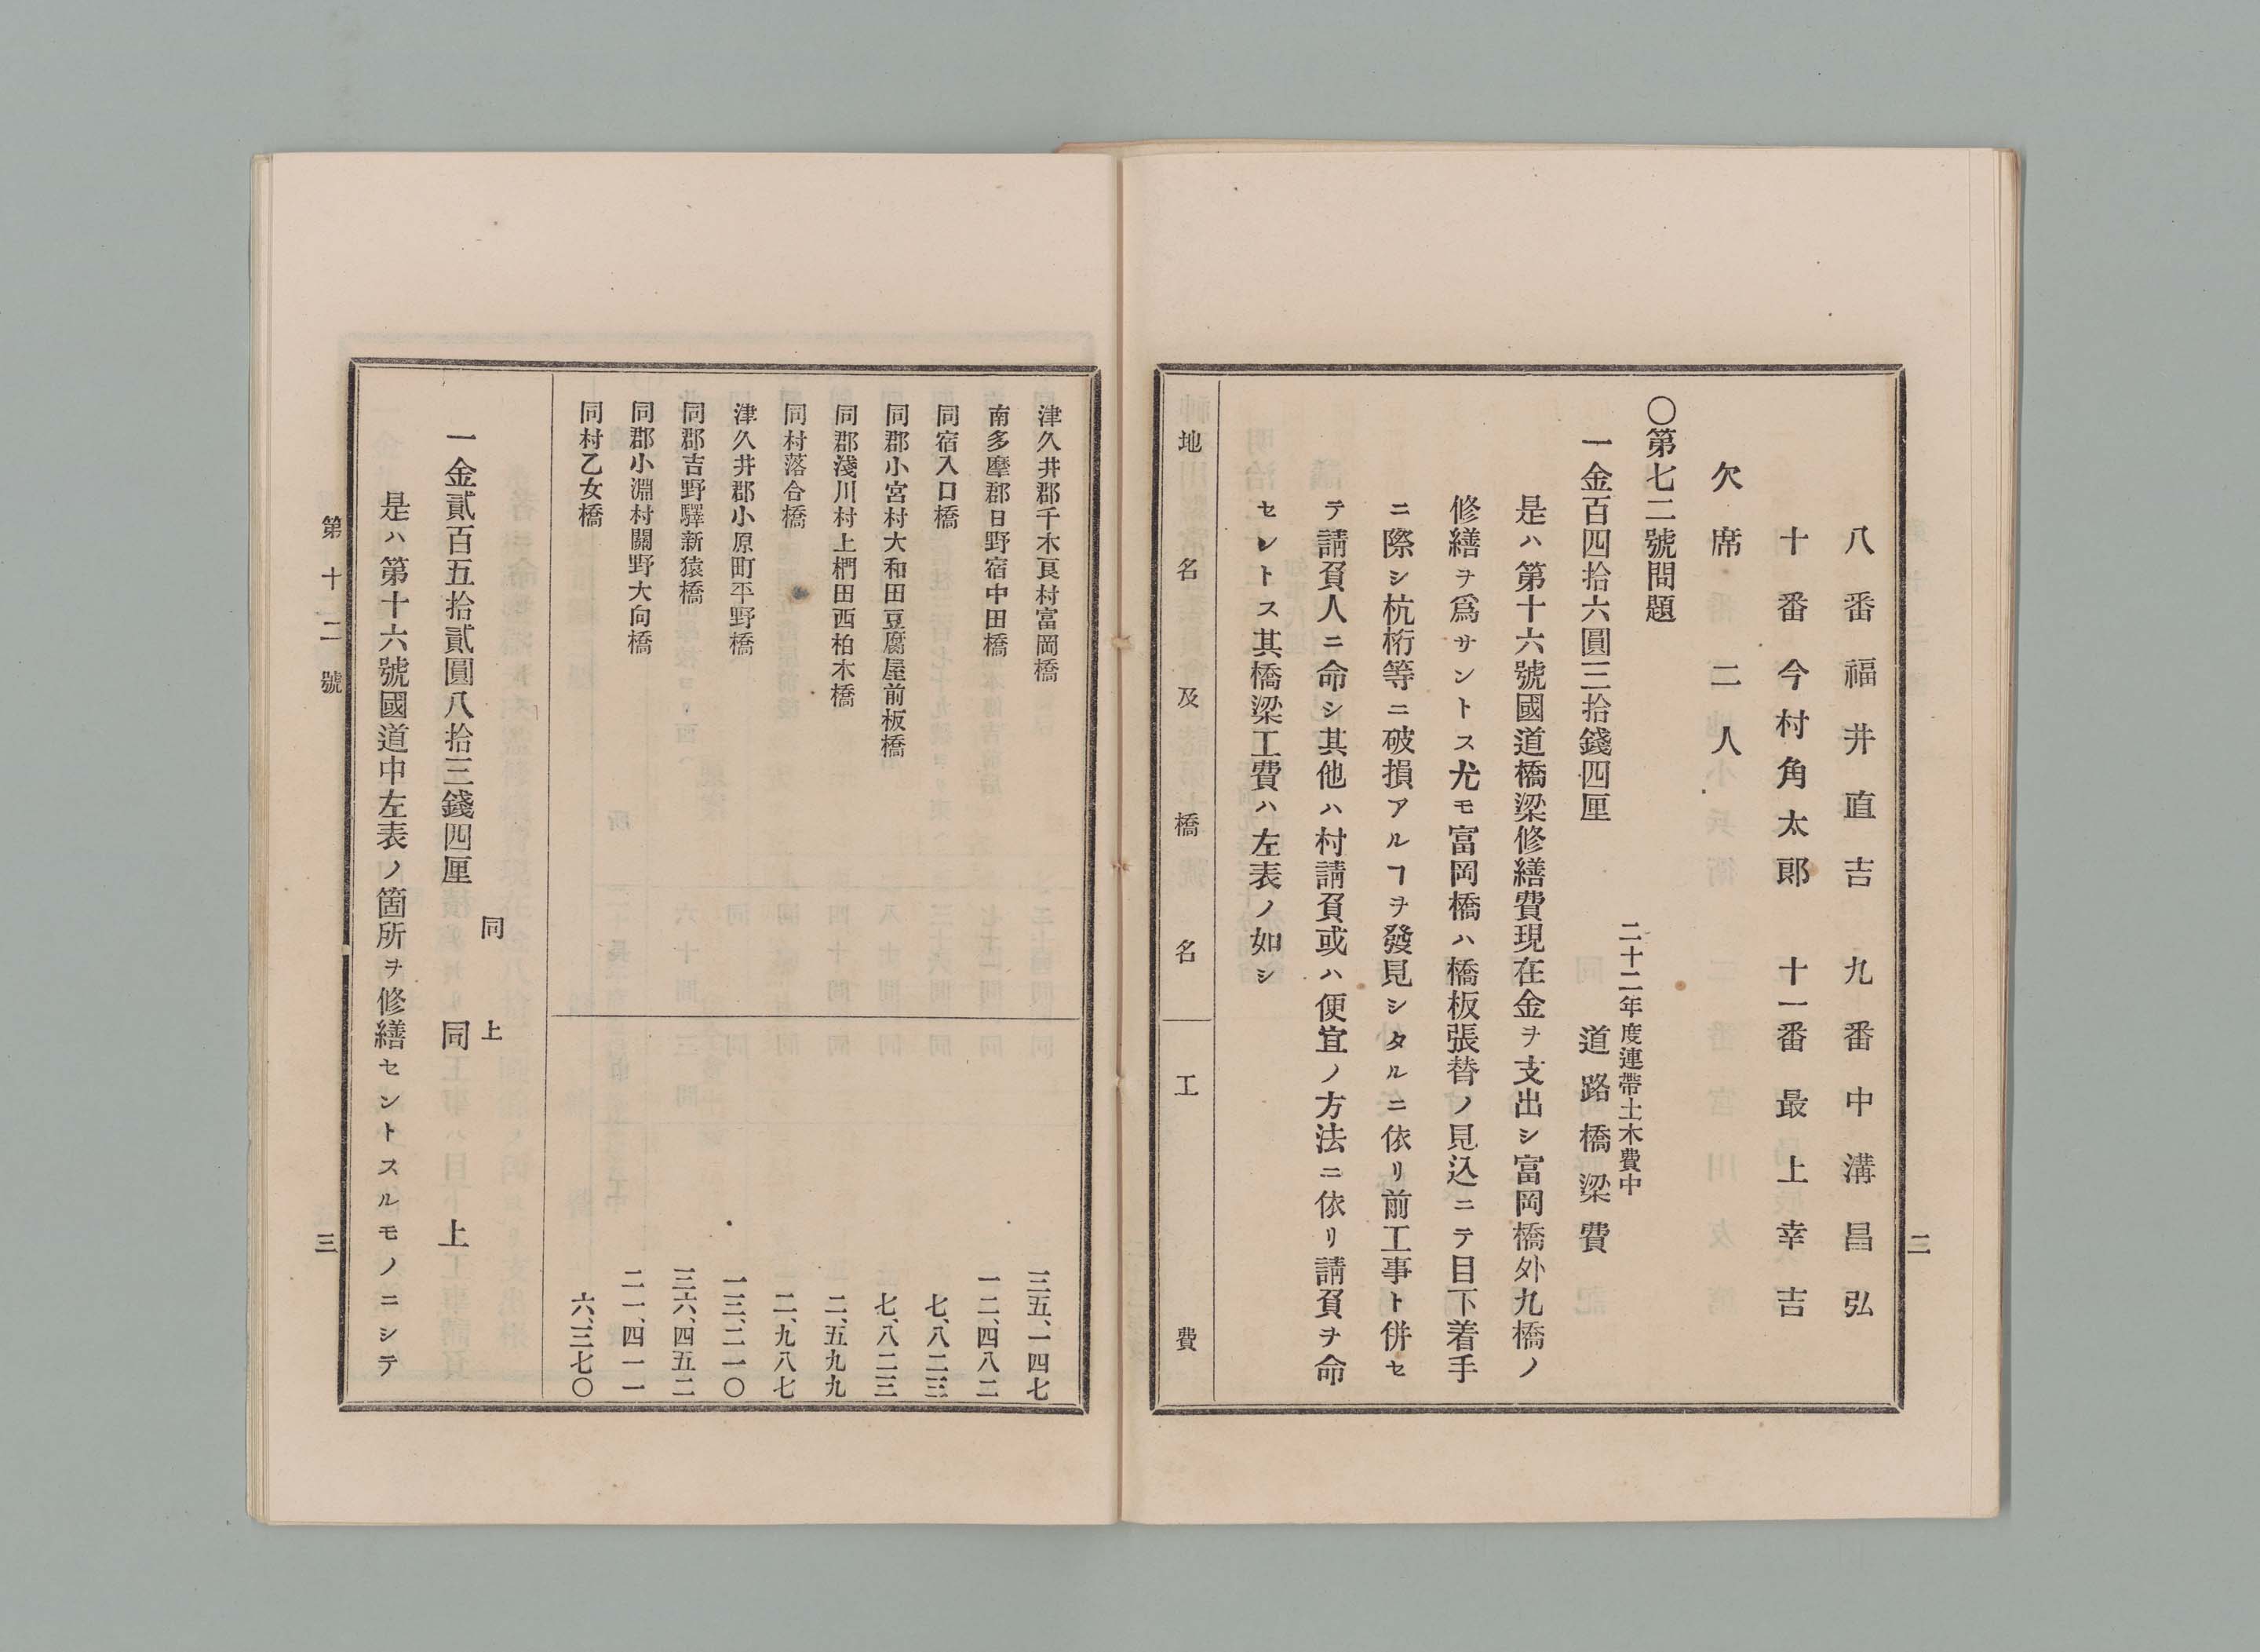 二
八番 福井直吉 九番 中溝昌弘
十番 今村角太郎 十一番 最上幸吉
欠席 二人
〇第七二號問題
二十二年度連帶土木費中
一金百四拾六圓三拾錢四厘 道路橋梁費
是ハ第十六號國道橋梁修繕費現在金ヲ支出シ富岡橋外九橋ノ
修繕ヲ爲サントス尤モ富岡橋ハ橋板張替ノ見込ニテ目下着手
ニ際シ杭桁等ニ破損アルヿヲ發見シタルニ依リ前工事ト併セ
テ請負人ニ命シ其他ハ村請負或ハ便宜ノ方法ニ依リ請負ヲ命
セントス其橋梁工費ハ左表ノ如シ
地名及橋名 工費
津久井郡千木良村富岡橋 三五、一四七
南多摩郡日野宿中田橋 一二、四八二
同宿入口橋 七、八二三
同郡小宮村大和田豆腐屋前板橋 七、八二三
同郡淺川村上椚田西柏木橋 二、五九九
同村落合橋 二、九八七
津久井郡小原町平野橋 一三、二一〇
同郡吉野驛新猿橋 三六、四五二
同郡小淵村關野大向橋 二一、四一一
同村乙女橋 六、三七〇
同上
一金貳百五拾貳圓八拾三錢四厘 同上
是ハ第十六號國道中左表ノ箇所ヲ修繕セントスルモノニシテ
第十二號 三